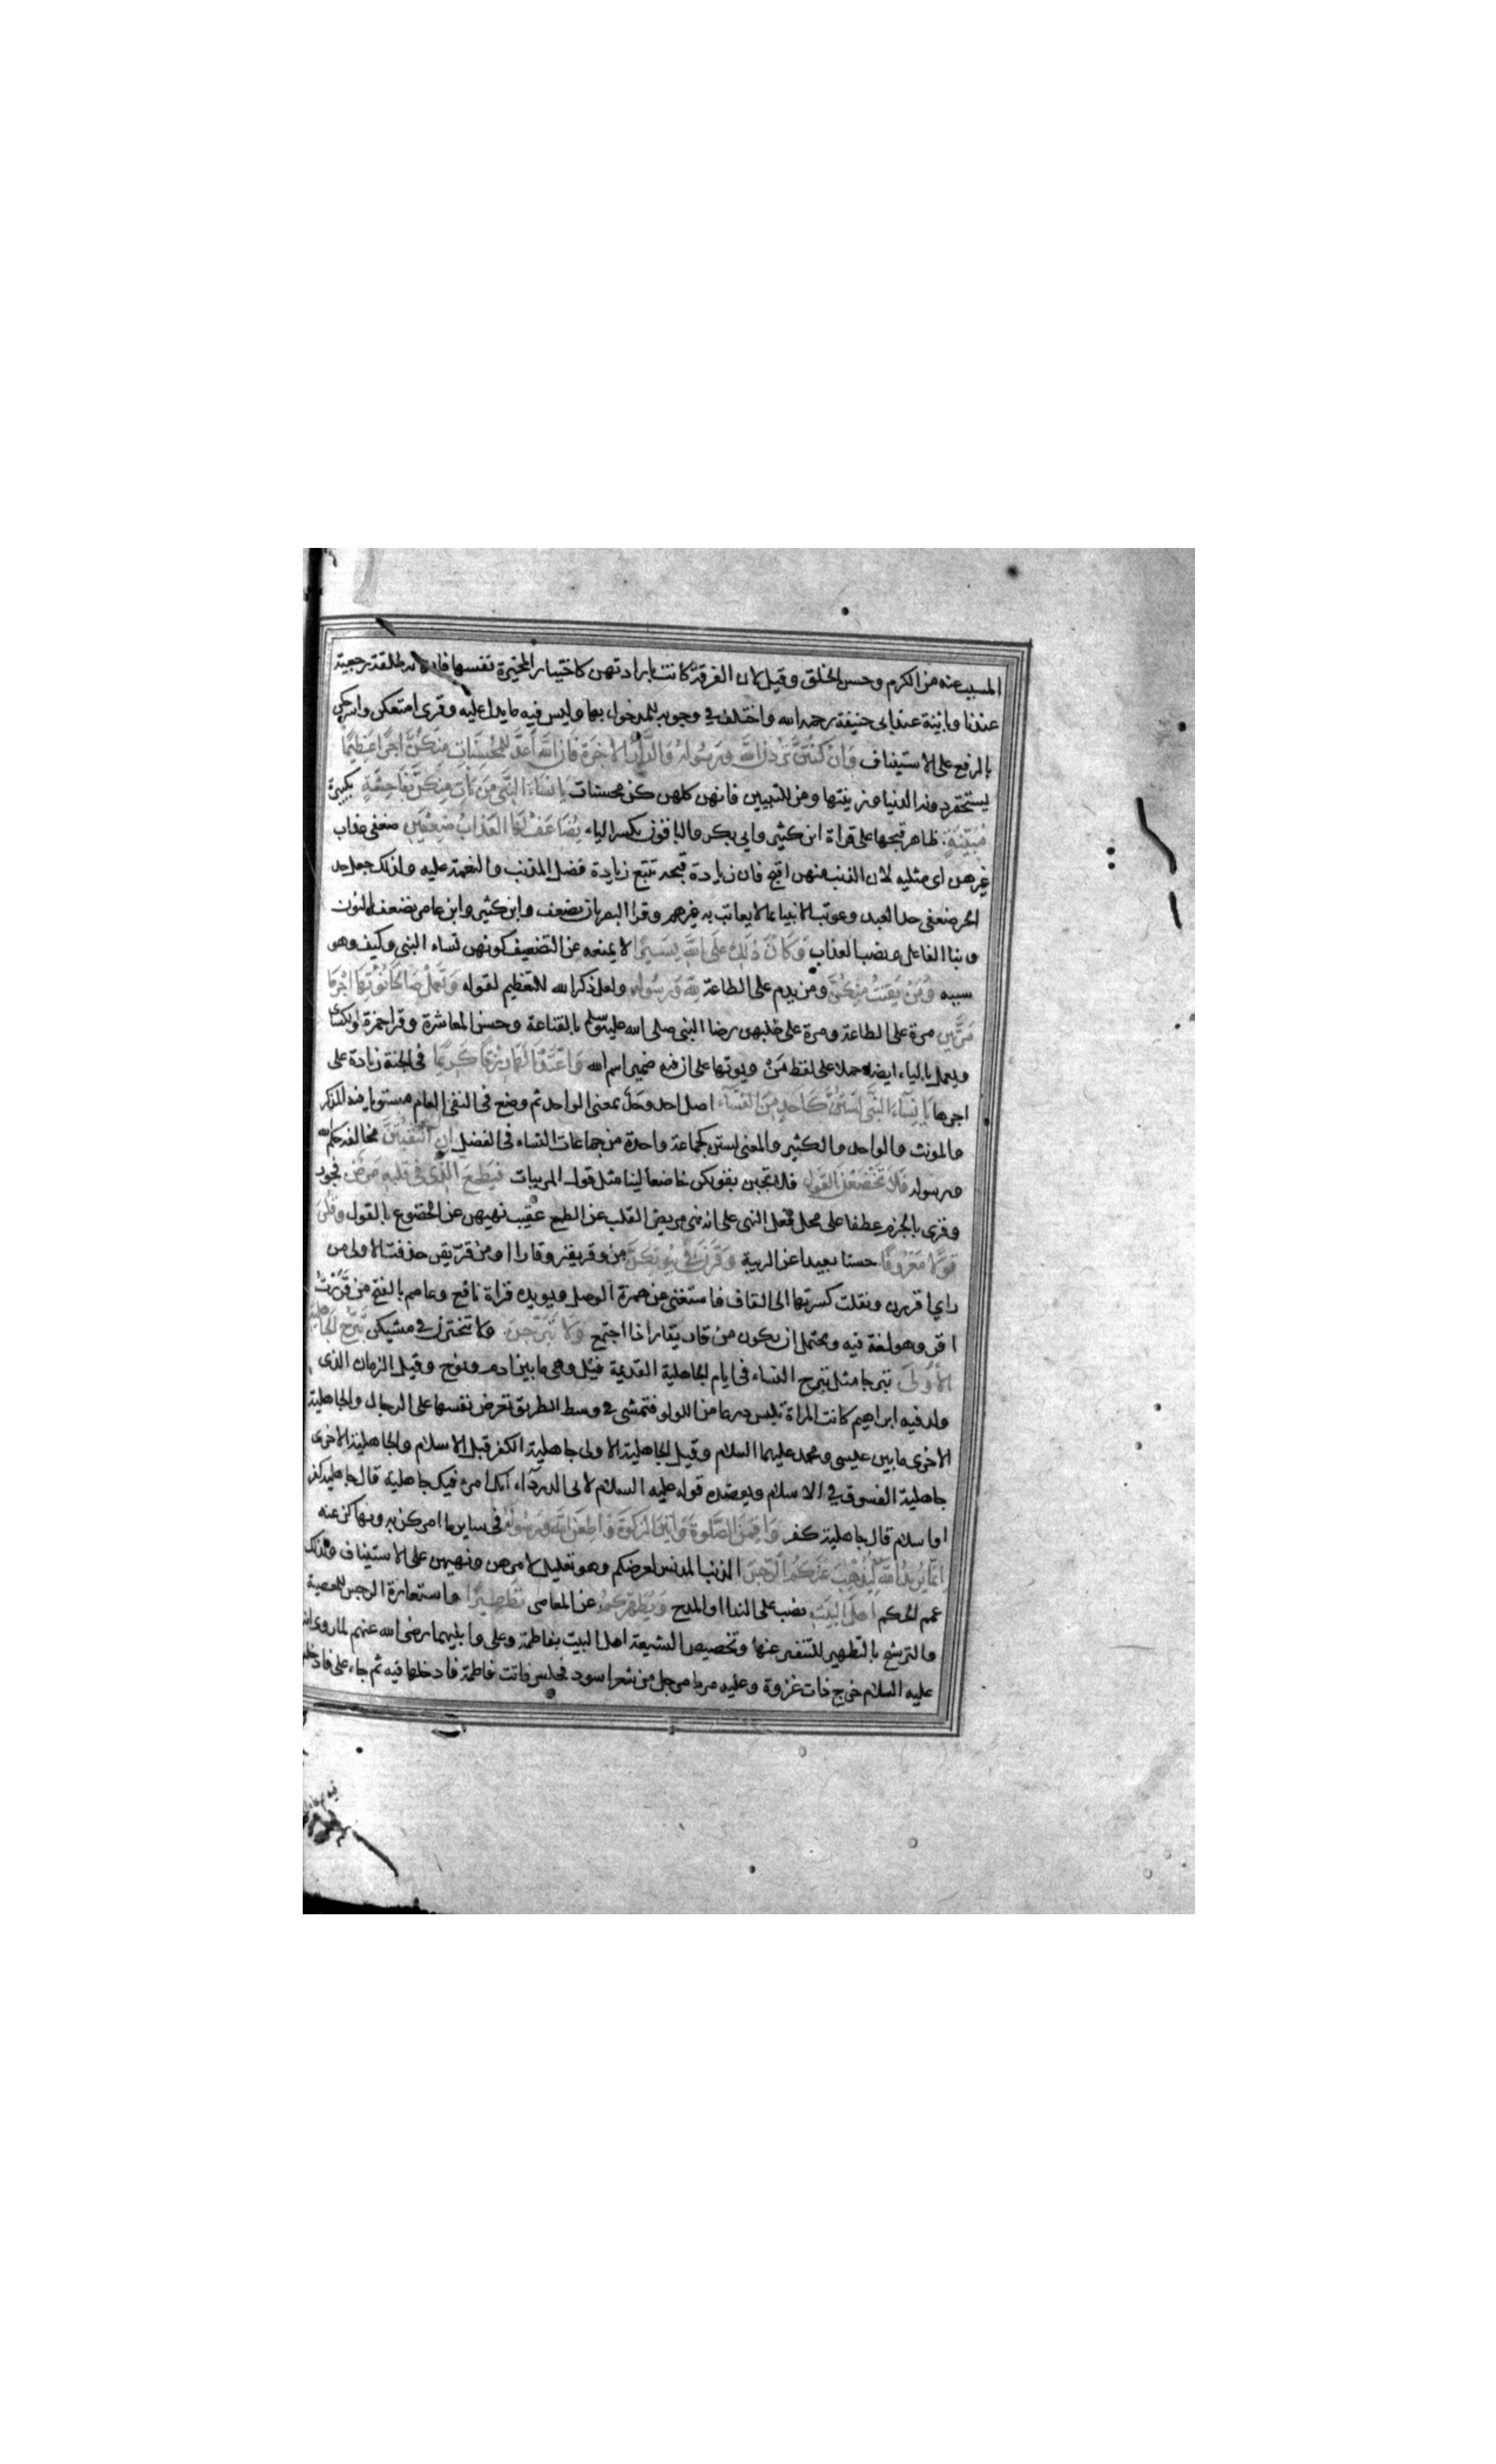 المسبب عنه من الكرم وحسن الخلق وقيل لان الفرقة كانت بارادتهن كاختيار المخيرة نفسها فانه طلقة رجعية
عندنا وباينة عند ابى حنيفة رحمه الله واختلف في وجوبه للمدخول بها وليس فيه ما يدل عليه وقرى امتعكن واسرحكن
بالرفع على الاستيناف وَاِنْ كُنْتُنَّ تُرِدْنَ اللّٰهَ وَرَسُولَهُ وَالدَّارَ الْاٰخِرَةَ فَاِنَّ اللّٰهَ اَعَدَّ لِلْمُحْسِنَاتِ مِنْكُنَّ اَجْرًا عَظِيمًا
يستحقر دونه الدنيا وزينتها ومن للتبيين فانهن كلهن كن محسنات يَا نِسَاءَ النَّبِيِّ مَنْ يَاْتِ مِنْكُنَّ بِفَاحِشَةٍ بكبيرة
مُبَيِّنَةٍ ظاهر قبحها على قراة ابن كثير وابى بكر والباقون بكسر الياء يُضَاعَفْ لَهَا الْعَذَابُ ضِعْفَيْنِ ضعفى عذاب
غيرهن اى مثليه لان الذنب منهن اقبح فان زيادة قبحه تتبع زيادة فضل المذنب والنعمة عليه ولذلك جعل حد
الحر ضعفى حد العبد وعوتب الانبيا بما لا يعاتب به غيرهم وقرا البصريان يضعف وابن كثير وابن عامر نضعف بالنون
وبنا الفاعل ونصب العذاب وَكَانَ ذٰلِكَ عَلَى اللّٰهِ يَسِيرًا لا يمنعه عن التضعيف كونهن نساء النبى وكيف وهو
سببه وَمَنْ يَقْنُتْ مِنْكُنَّ ومن يدم على الطاعة لِلّٰهِ وَرَسُولِهِ ولعل ذكر الله للتعظيم لقوله وَتَعْمَلْ صَالِحًا نُؤْتِهَا اَجْرَهَا
مَرَّتَيْنِ مرة على الطاعة ومرة على طلبهن رضا النبى صلى الله عليه وسلم بالقناعة وحسن المعاشرة وقرا حمزة والكسائى
ويعمل بالياء ايضا حملا على لفظ مَنْ ويوتها على ان فيه ضمير اسم الله وَاَعْتَدْنَا لَهَا رِزْقًا كَرِيمًا فى الجنة زيادة على
اجرها يَا نِسَاءَ النَّبِيِّ لَسْتُنَّ كَاَحَدٍ مِنَ النِّسَاءِ اصل احد وحد بمعنى الواحد ثم وضع فى النفى العام مستويا فيه المذكر
والمونث والواحد والكثير والمعنى لستن كجماعة واحدة من جماعات النساء فى الفضل اِنِ اتَّقَيْتُنَّ مخالفة حكم الله
ورسوله فَلَا تَخْضَعْنَ بِالْقَوْلِ فلا تجبن بقولكن خاضعا لينا مثل قول المريبات فَيَطْمَعَ الَّذِي فِي قَلْبِهِ مَرَضٌ فجور
وقرى بالجزم عطفا على محل فعل النهى على انه نهى مريض القلب عن الطمع عقيب نهيهن عن الخضوع بالقول وَقُلْنَ
قَوْلًا مَعْرُوفًا حسنا بعيدا عن الريبة وَقَرْنَ فِي بُيُوتِكُنَّ من وقر يقر وقارا او من قر يقر حذفت الاولى من
راى اقررن ونقلت كسرتها الى القاف فاستغنى من همزة الوصل ويويده قراة نافع وعاصم بالفتح من قَرَرْتُ
اقر وهو لغة فيه ويحتمل ان يكون من قار يقار اذا اجتمع وَلَا تَبَرَّجْنَ ولا تتبخترن فى مشيكن تَبَرُّجَ الْجَاهِلِيَّةِ
الْاُولٰى تبرجا مثل تبرج النساء فى ايام الجاهلية القديمة قيل وهى ما بين ادم ونوح وقيل الزمان الذى
ولد فيه ابراهيم كانت المراة تلبس درعا من اللولو فتمشى فى وسط الطريق تعرض نفسها على الرجال والجاهلية
الاخرى ما بين عيسى ومحمد عليهما السلام وقيل الجاهلية الاولى جاهلية الكفر قبل الاسلام والجاهلية الاخرى
جاهلية الفسوق فى الاسلام ويعضده قوله عليه السلام لابى الدرداء انك امرء فيك جاهلية قال جاهلية كفر
او اسلام قال جاهلية كفر وَاَقِمْنَ الصَّلٰوةَ وَاٰتِينَ الزَّكٰوةَ وَاَطِعْنَ اللّٰهَ وَرَسُولَهُ فى ساير ما امركن به ونهاكن عنه
اِنَّمَا يُرِيدُ اللّٰهُ لِيُذْهِبَ عَنْكُمُ الرِّجْسَ الذنب المدنس لعرضكم وهو تعليل لامرهن ونهيهن على الاستيناف ولذلك
عمم الحكم اَهْلَ الْبَيْتِ نصب على الندا او المدح وَيُطَهِّرَكُمْ عن المعاصى تَطْهِيرًا واستعارة الرجس للمعصية
والترشيح بالتطهير للتنفير عنها وتخصيص الشيعة اهل البيت بفاطمة وعلى وابنيهما رضى الله عنهم لما روى انه
عليه السلام خرج ذات غزوة وعليه مرط مرجل من شعر اسود فجلس فاتت فاطمة فادخلها فيه ثم جاء على فادخله